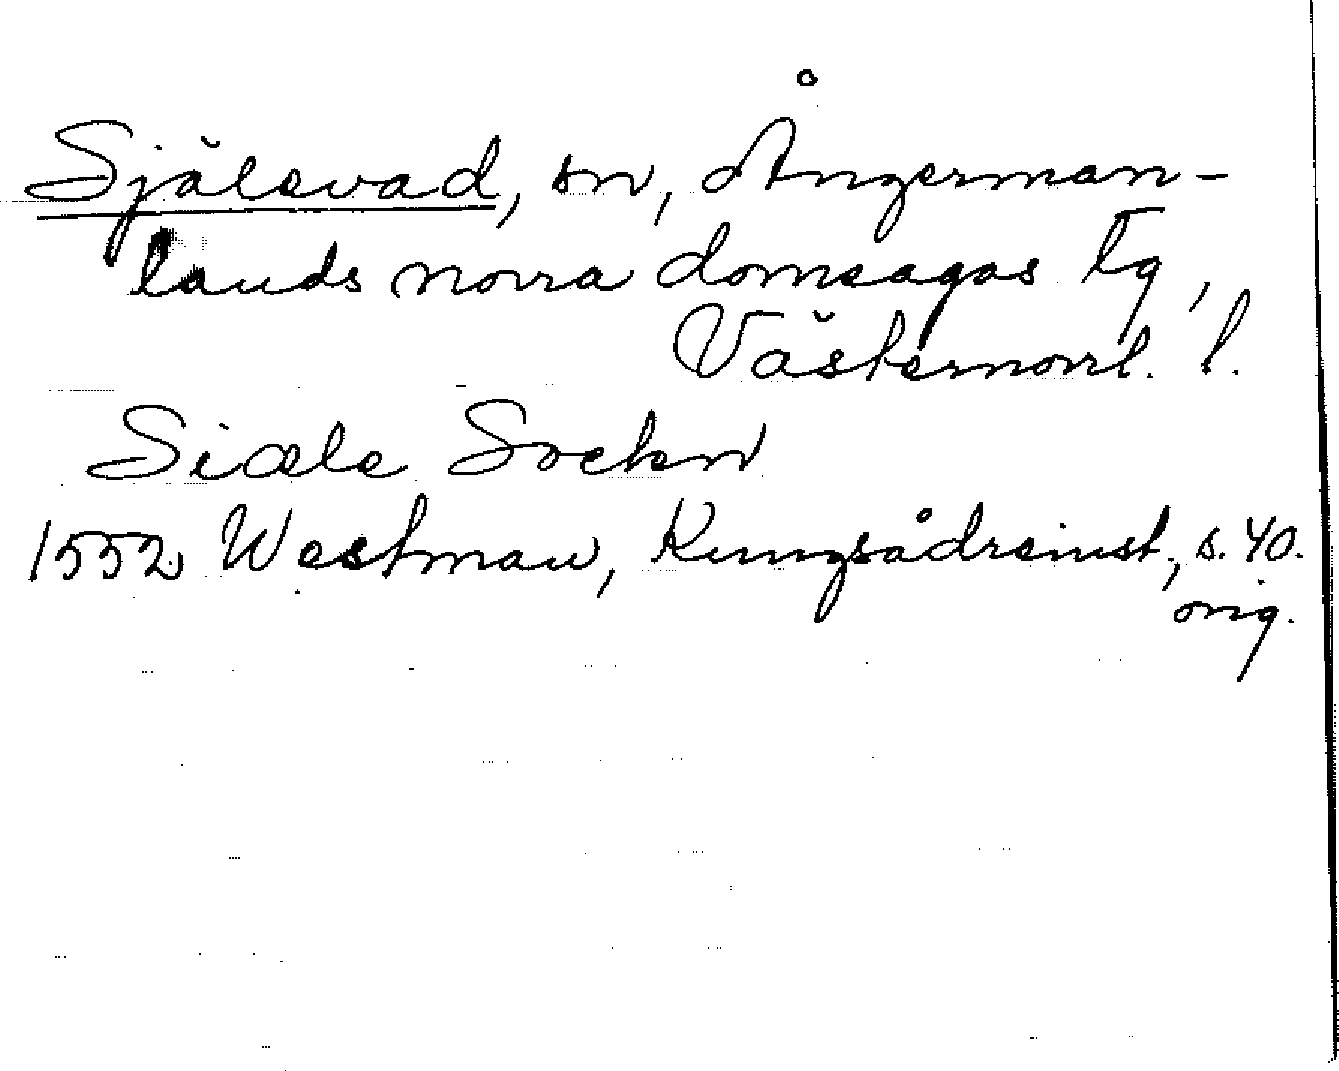 Själevad, sn, Ångerman-
lands norra domsagas tg,
Västernorrl. l.
Siæle Sockn
1552 Westman, Kungsådreinst., s. 40.
orig.